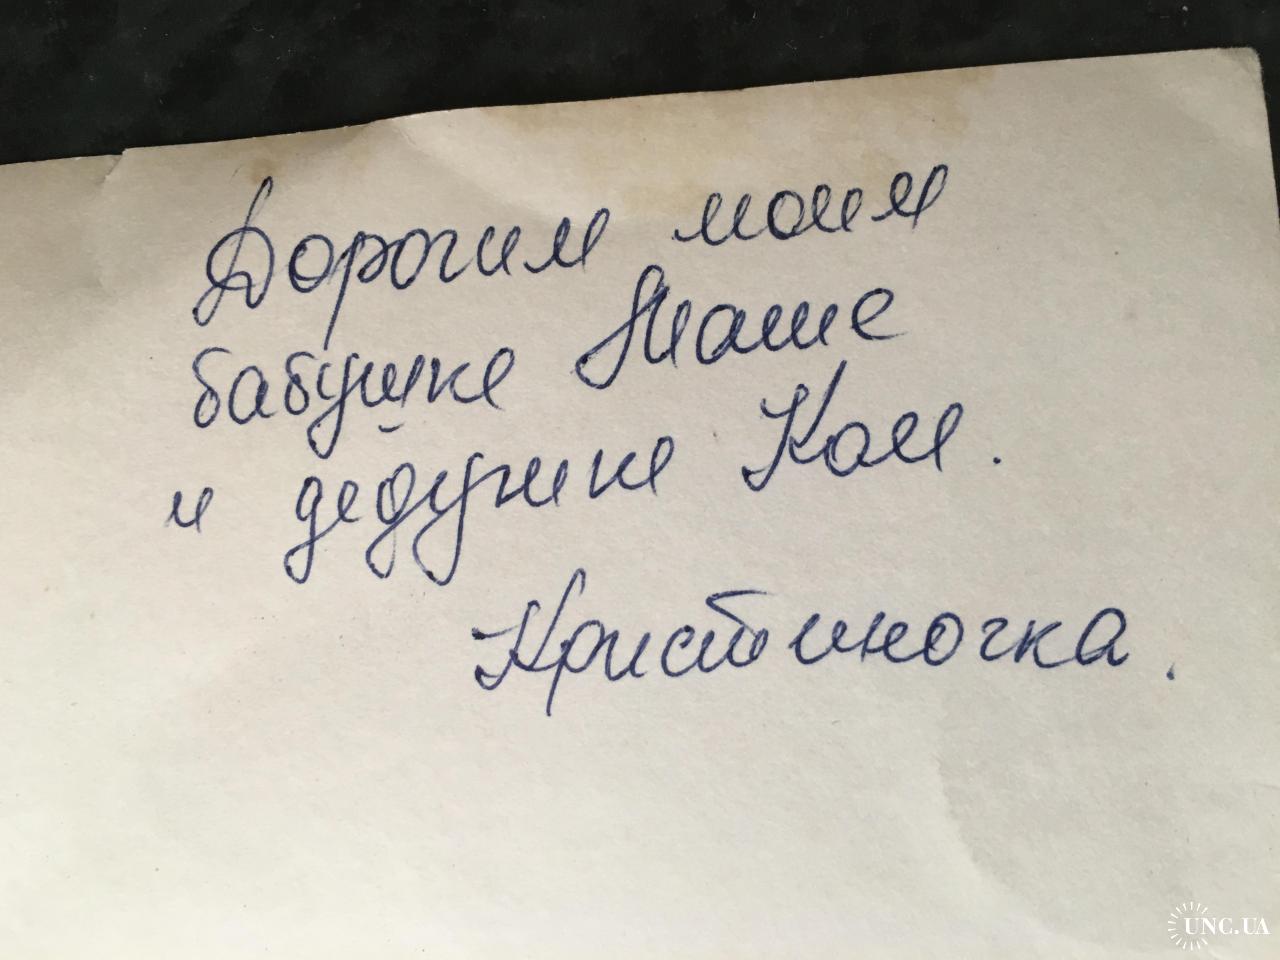 Дорогим моим
бабушке Маше
и дедушке Коле.
Кристиночка.
UNC.UA